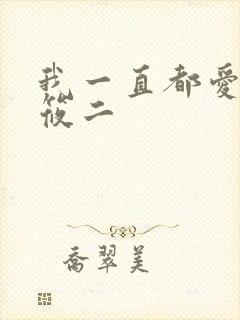 我一直都愛
筱二
喬翠美